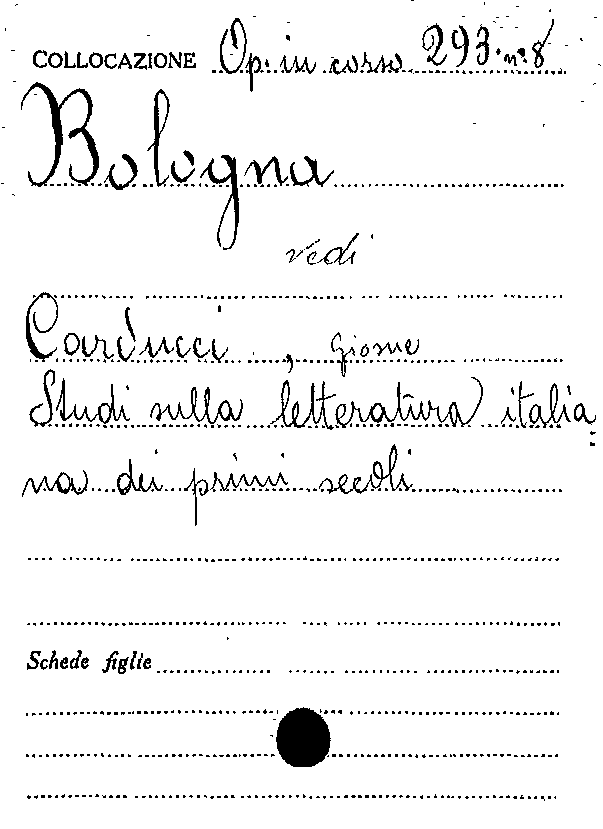 COLLOCAZIONE Op. in corso 293. n. 8
Bologna
vedi
Carducci, Giosue
Studi sulla letteratura italia=
na dei primi secoli
Schede figlie